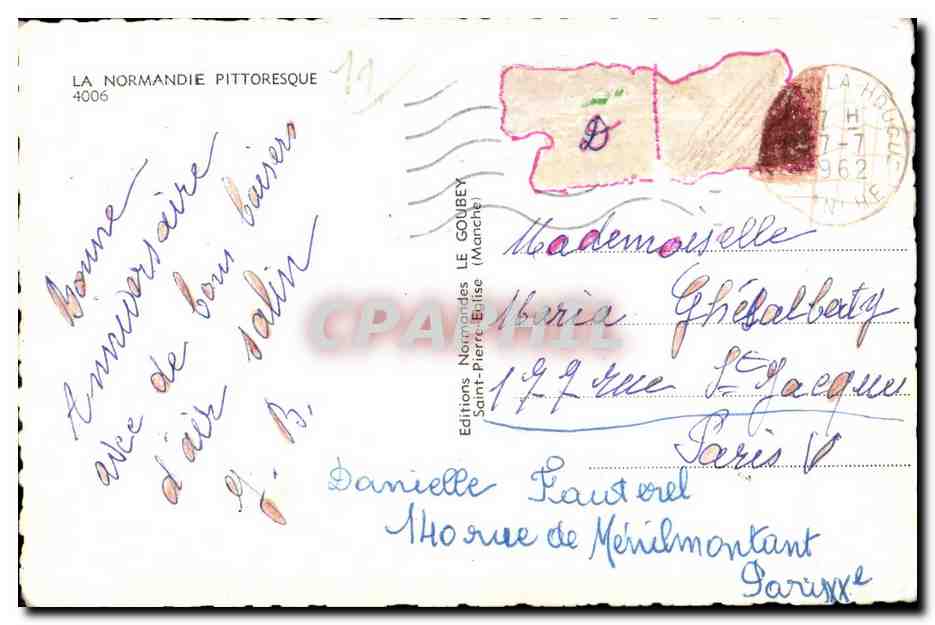 LA NORMANDIE PITTORESQUE
4006
11
Bonne
Anniversaire
avec de bons baisers
d'air salin
B.
Editions Normandes LE GOUBEY
Saint-Pierre-Eglise (Manche)
D
LA HOUGUE
7 H
7-7
962
Mademoiselle
Maria
177 rue St Jacques
Paris V
Danielle Fauterel
140 rue de Ménilmontant
Paris XXe
CPAPHIL